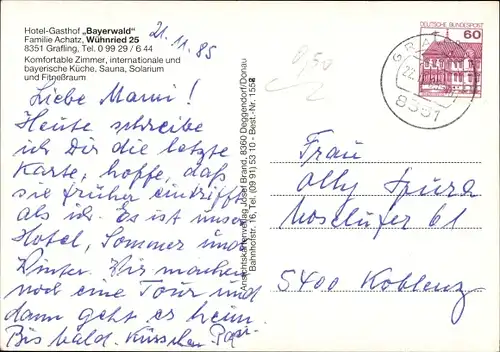 Hotel-Gasthof „Bayerwald"
Familie Achatz, Wühnried 25
8351 Grafling, Tel. 0 99 29 / 6 44
Komfortable Zimmer, internationale und
bayerische Küche, Sauna, Solarium
und Fitneßraum
21.11.85
Liebe Mami!
Heute schreibe
ich Dir die letzte
Karte, hoffe, daß
sie früher eintrifft
als ich. Es ist unser
Hotel, Sommer und
Winter. Wir machen
noch eine Tour und
dann geht es heim.
Bis bald. Küsschen Papi
Ansichtskartenverlag Josef Brand, 8360 Deggendorf/Donau
Bahnhofstr. 16, Tel. (09 91) 53 10 - Best.-Nr. 1552
0,50
DEUTSCHE BUNDESPOST
60
8351
Frau
Olly Spura
Moselufer 61
5400 Koblenz